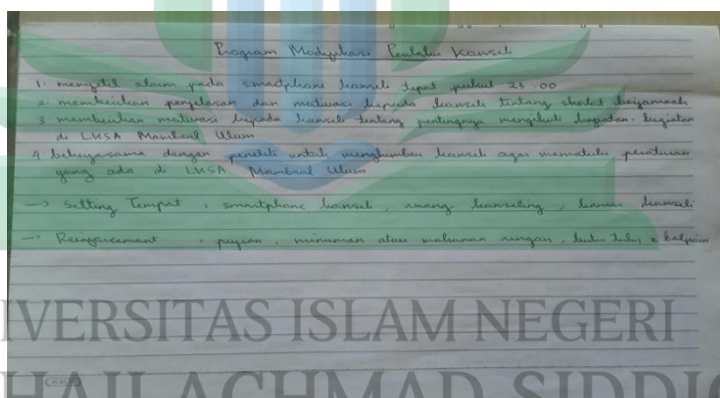 Program Modifikasi Perilaku Konseli
1. menyetel alarm pada smartphone konseli tepat pukul 23.00
2. memberikan penjelasan dan motivasi kepada konseli tentang sholat berjamaah
3 memberikan motivasi kepada konseli tentang pentingnya mengikuti kegiatan-kegiatan
di LKSA Manbaul Ulum
4 bekerjasama dengan peneliti untuk menghimbau konseli agar mematuhi peraturan
yang ada di LKSA Mambaul Ulum
→ Setting Tempat : smartphone konseli, ruang konseling, kamar konseli
→ Reinforcement : pujian, minuman atau makanan ringan, buku tulis &
IVERSITAS ISLAM NEGERI
HAJI ACHMAD SIDDIQ